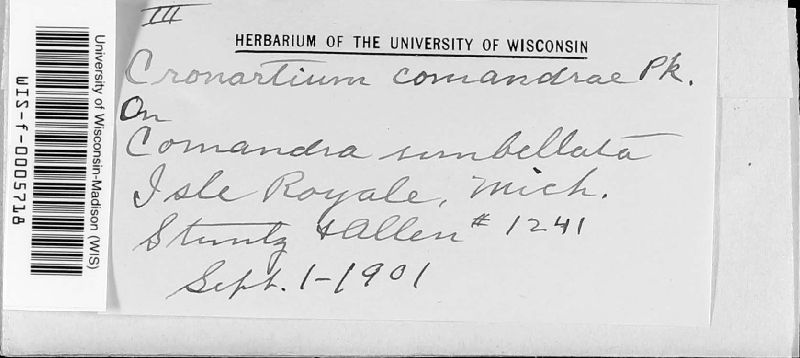 III
HERBARIUM OF THE UNIVERSITY OF WISCONSIN
Cronartium comandrae Pk.
On
Comandra umbellata
Isle Royale, Mich.
Stuntz & Allen # 1241
Sept. 1-1901
University of Wisconsin-Madison (WIS)
WIS-f-0005718